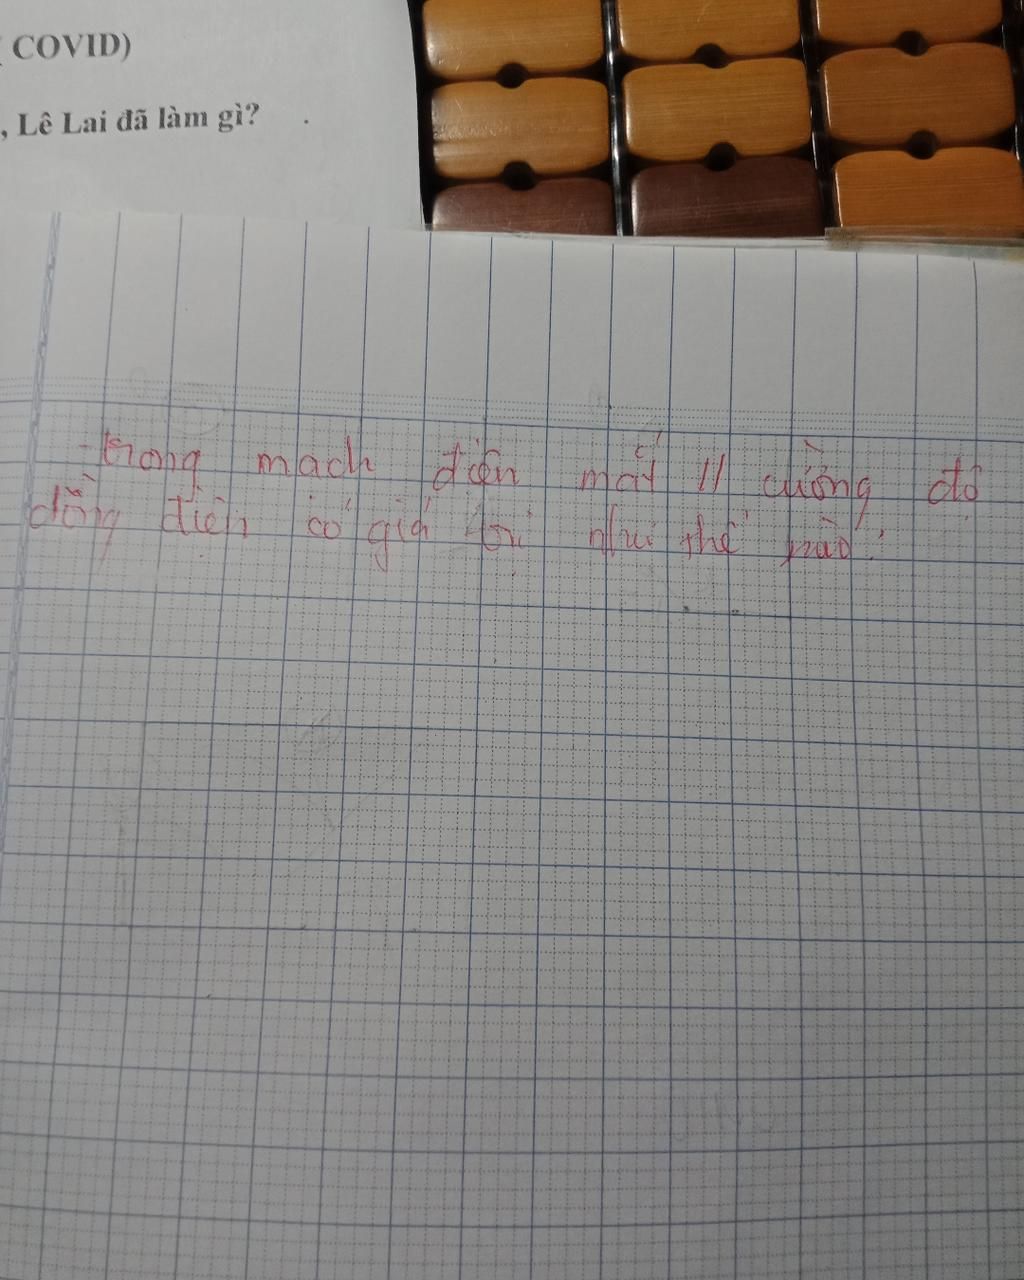 ( COVID)
, Lê Lai đã làm gì?
- trong mạch điện mắc // cường độ
dòng điện có giá trị như thế nào?